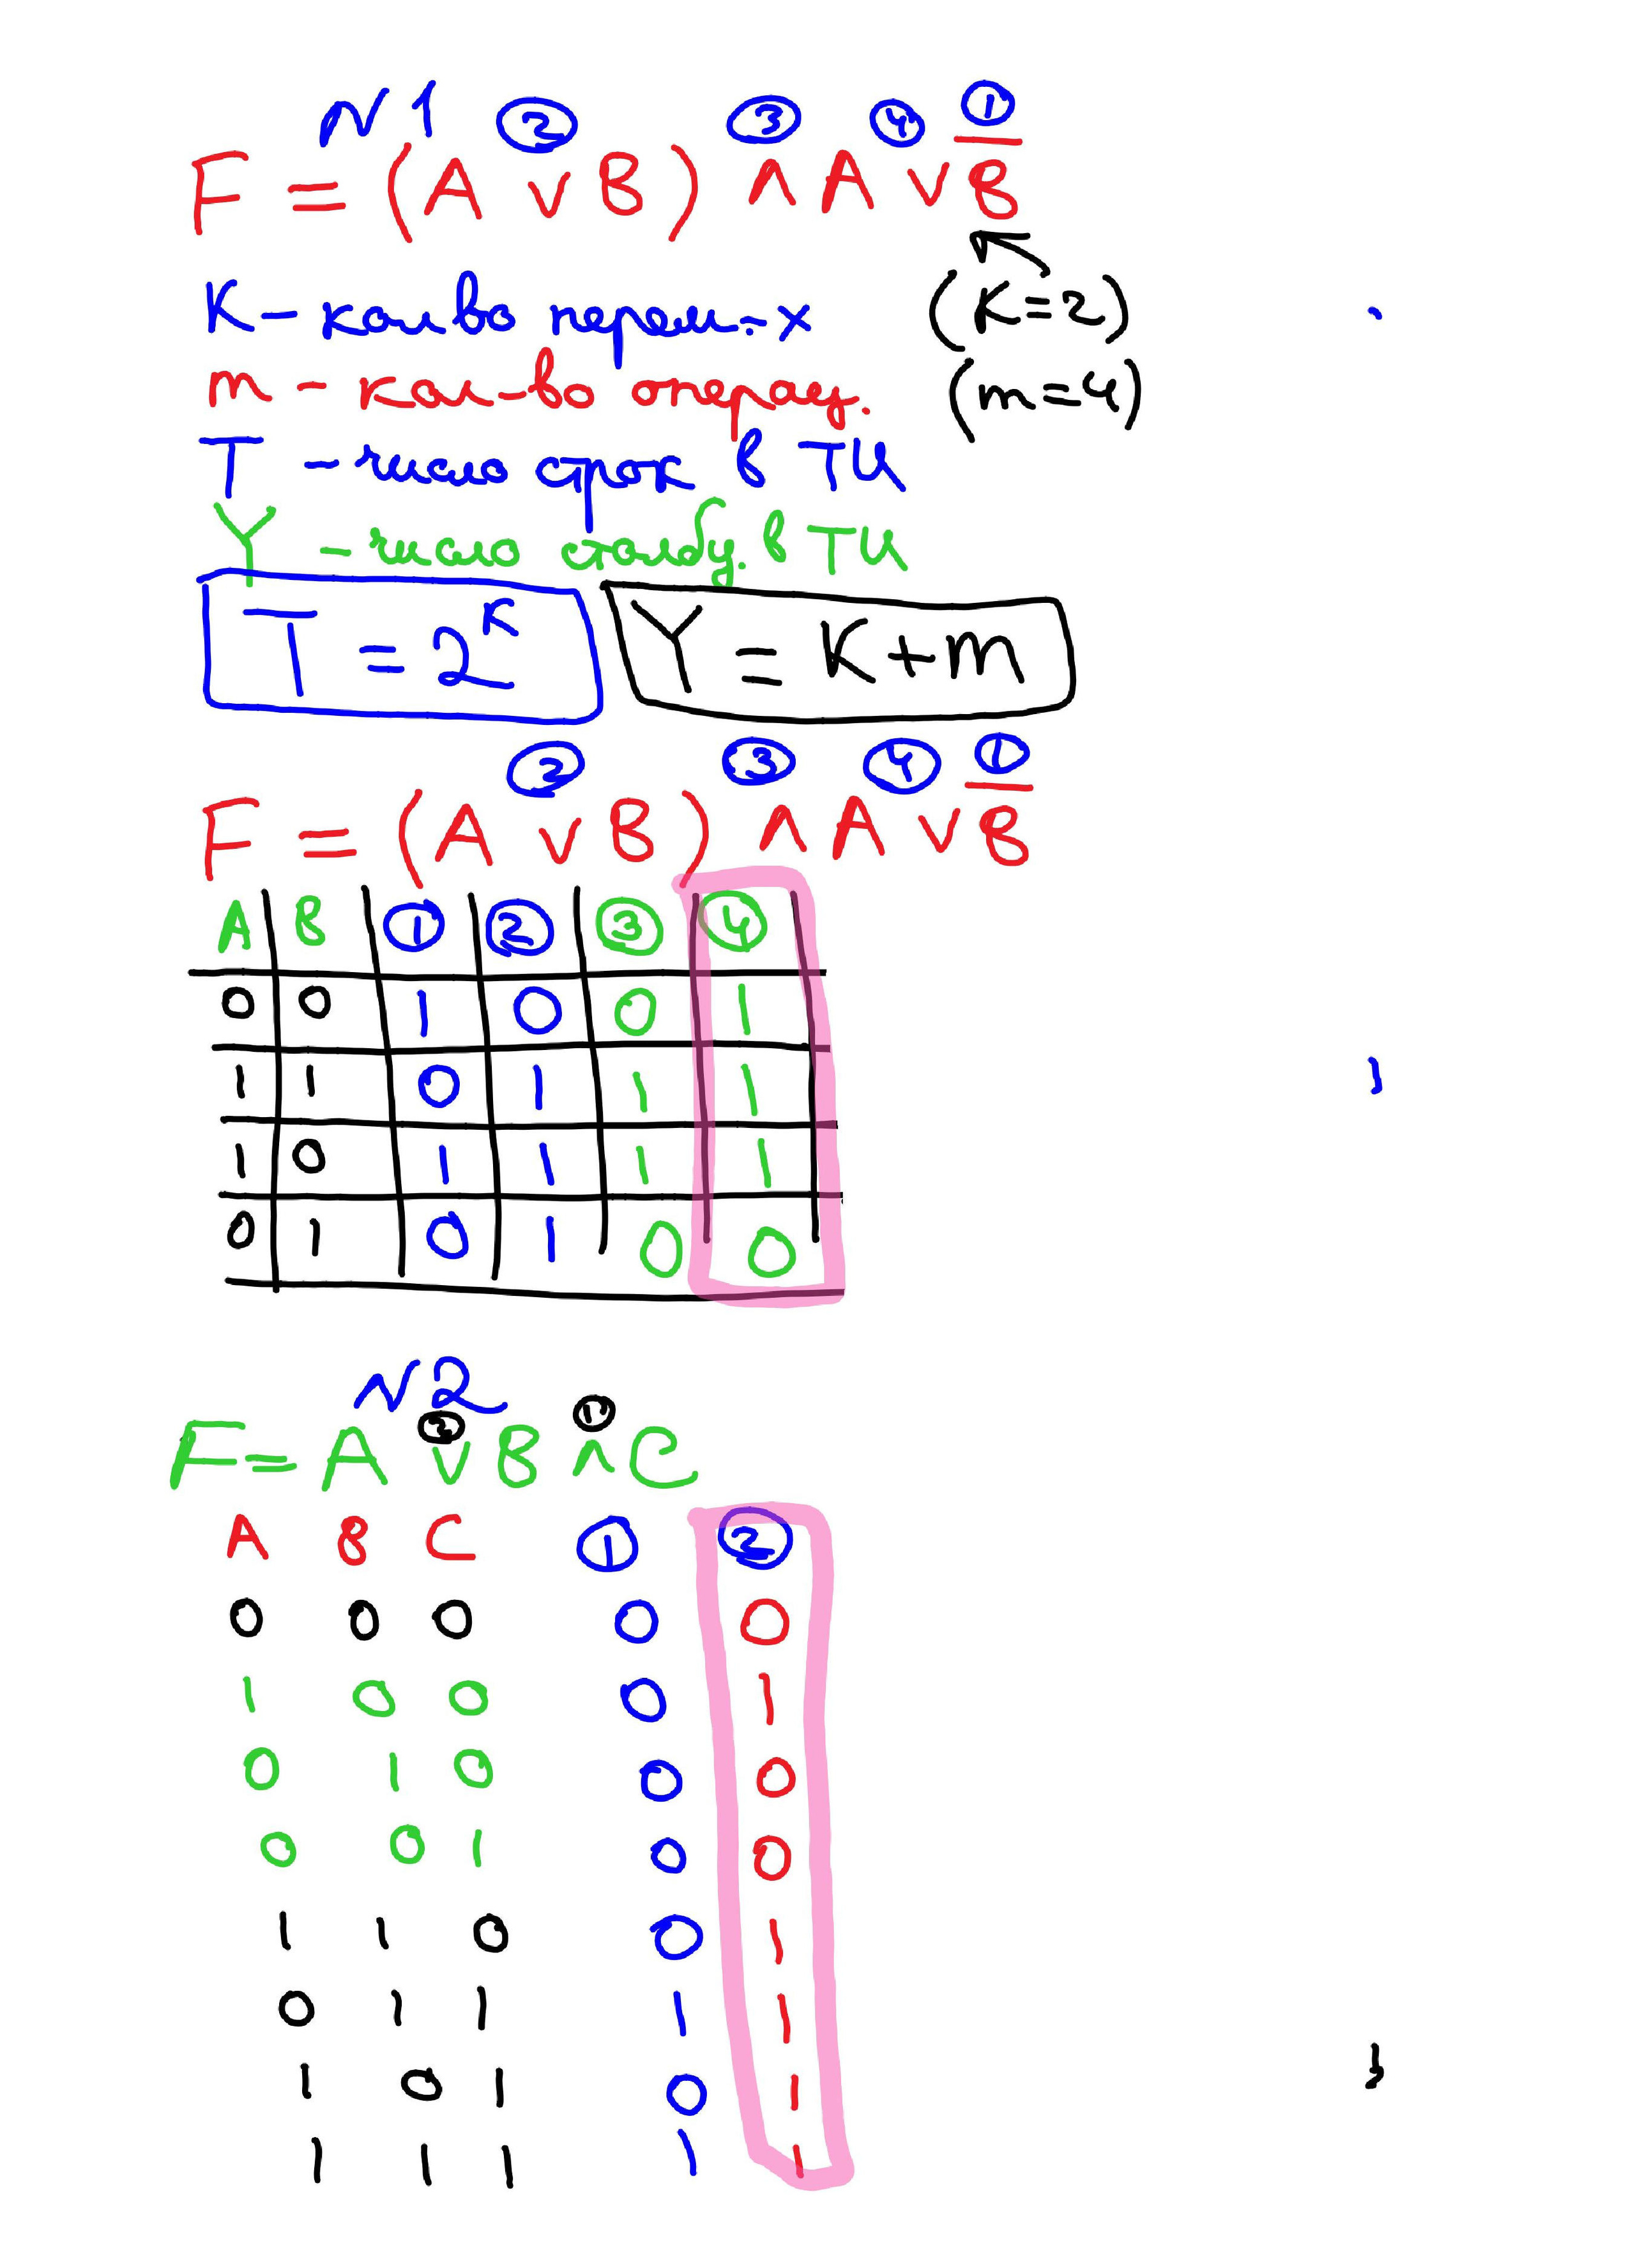 N1 ② ③ ④ ①
F = (A ∨ B) ∧ A ∨ B̅
K - кол-во перем.-х (K=2)
m - кол-во операц. (m=4)
T - число строк в ТИ
Y - число столбц. в ТИ
T = 2^K Y = K+m
② ③ ④ ①
F = (A ∨ B) ∧ A ∨ B̅
A B ① ② ③ ④
0 0 1 0 0 1
1 1 0 1 1 1
1 0 1 1 1 1
0 1 0 1 0 0
N2
② ①
F = A ∨ B ∧ C
A B C ① ②
0 0 0 0 0
1 0 0 0 1
0 1 0 0 0
0 0 1 0 0
1 1 0 0 1
0 1 1 1 1
1 0 1 0 1
1 1 1 1 1